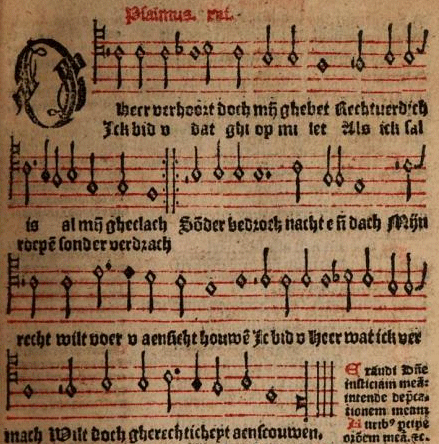 Psalmus. xvi.
O Heer verhoort doch mijn ghebet Rechtuerdich
Ick bid v dat ghi op mi let Als ick sal
is al mijn gheclach Sōder bedroch nacht eñ dach Mijn
roepē sonder verdrach
recht wilt voer v aensicht houwē Ic bid v Heer wat ick ver
mach Wilt doch gherechticheyt aenscouwen,
Exaudi Dñe
iusticiam meā:
intende depċa-
tionem meam
Aurib⁹ ꝑcipe
orōnem meā. ⁊c.